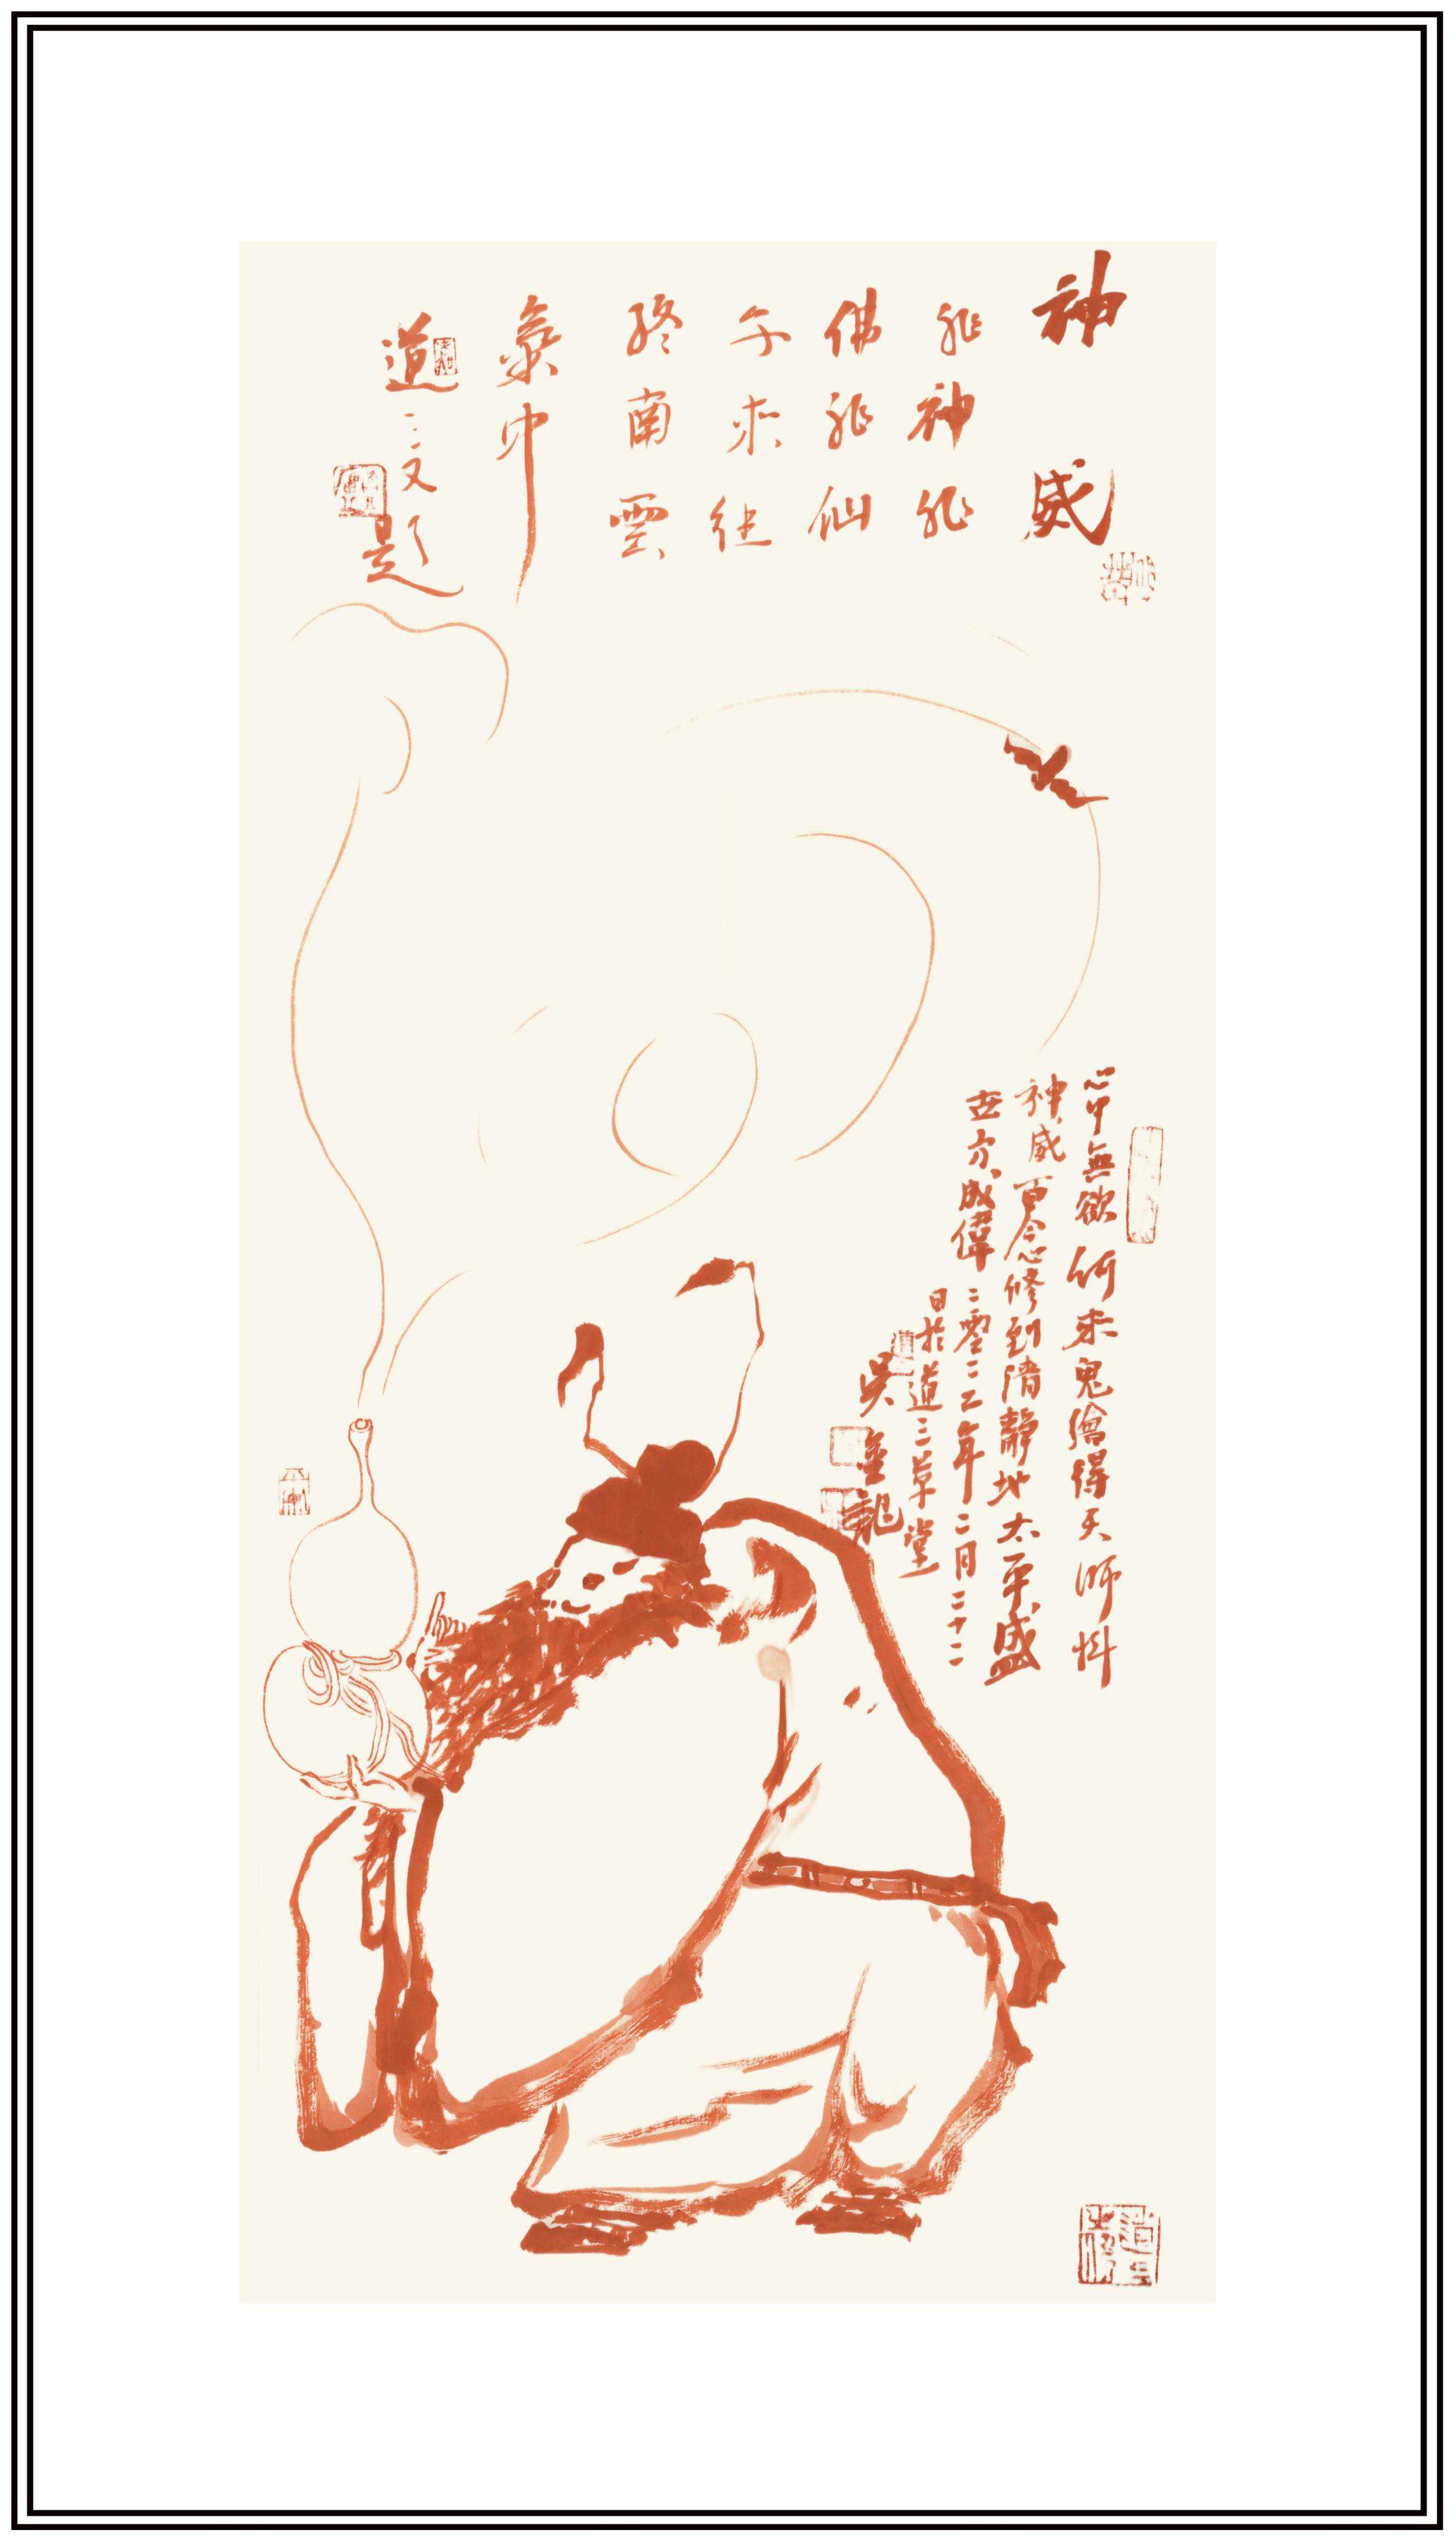 神威
非神非
佛非仙
乍来往
終南雲
氣中
道三又題
心中無欲何来鬼繪得天師抖
神威百念修到清静地太平盛
世方成偉二零二二年二月二十二
日於道三草堂
吳金龍